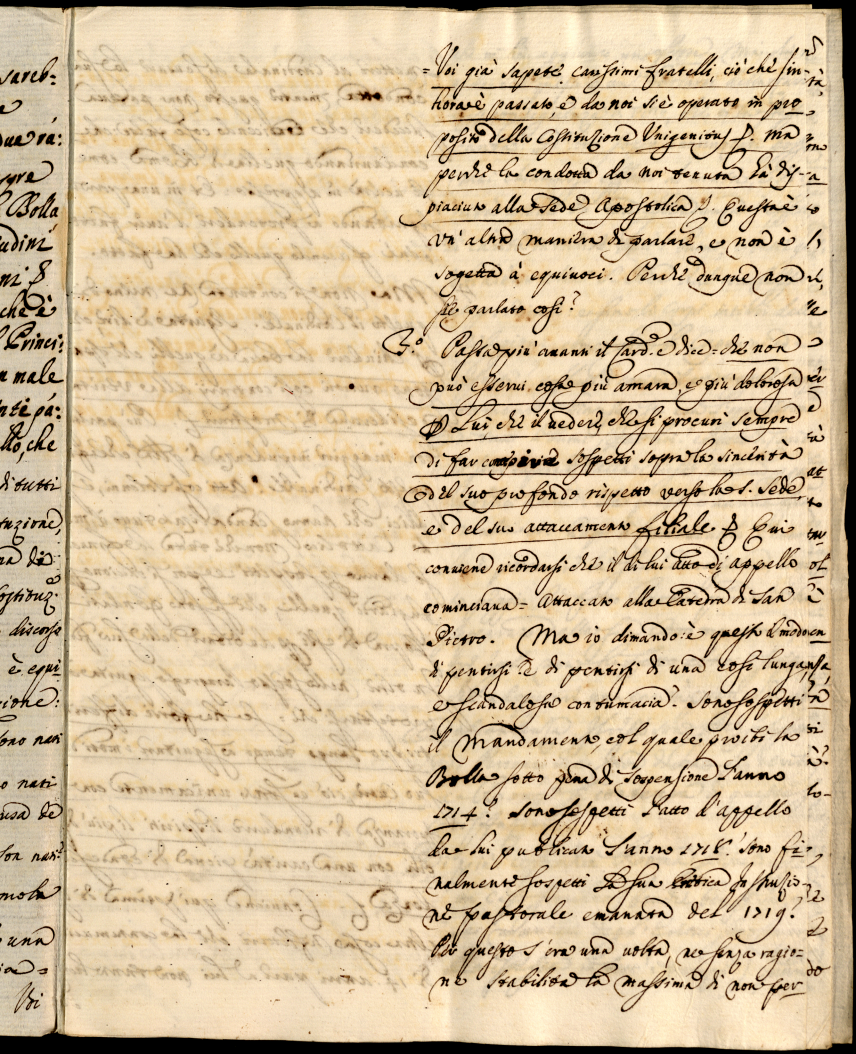 sareb=
e
due rà:
gre
Bolla
udini
ni &
che è
Princi:
a male
nte pa:
llo, che
di tutti
tuzione,
na di
ostituz:
discorso
è equi
zione:
sono nati
o nati
usa de
son nati
mola
una
=
Vi
= Voi già sapete carissimi fratelli, ciò che sin=
hora è passato, e da noi si è operato in pro
posito della Costituzione Unigenitus &. ma
perche la condotta da noi tenuta hà dis=
piaciuto alla Sede Apostolica &. Questa è
un' altra maniera di parlare, e non è
sogetta à equivoci. Perche dunque non
hà parlato così?
3.° Passa più avanti il Card.e e dice = che non
può esservi cosa più amara, e più dolorosa
p Lui, che il vedere, che si procuri sempre
di far sospetti sopra la sincerità
del suo profondo rispetto verso la S. Sede,
e del suo attaccamento filiale &. Qui
conviene ricordarsi che il di lui atto di appello
cominciava = Attaccato alla Catedra di San
Pietro. Ma io dimando: è questo il modo
di pentirsi? e di pentirsi di una così lunga,
e scandalosa contumacia? Sono sospetti
il Mandamento, col quale proibì la
Bolla sotto pena di sospensione l'anno
1714? Sono sospetti l'atto d'appello
da lui publicato l'anno 1718? Sono fi=
nalmente sospetti la sua Instruzio
ne pastorale emanata del 1719?
Per questo s'era una volta, ne senza ragio=
ne stabilita la massima di non per